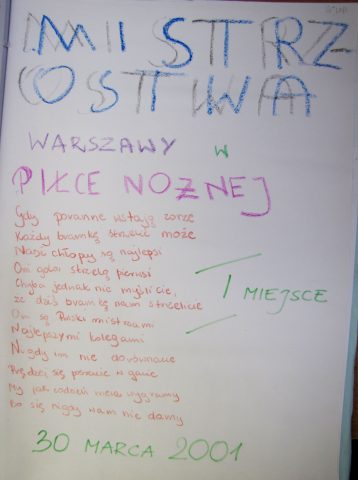 MISTRZ
OSTWA
WARSZAWY W
PIŁCE NOŻNEJ
Gdy poranne wstają zorze
Każdy bramkę strzelić może
Nasi chłopcy są najlepsi
Oni gola strzelą pierwsi
Chyba jednak nie myślicie,
że dziś bramkę nam strzelicie
Oni są Polski mistrzami
Najlepszymi kolegami
Nigdy im nie dorównacie
Prędzej się w gacie
My jak codzień mecz wygramy
Bo się nigdy wam nie damy
I MIEJSCE
30 MARCA 2001